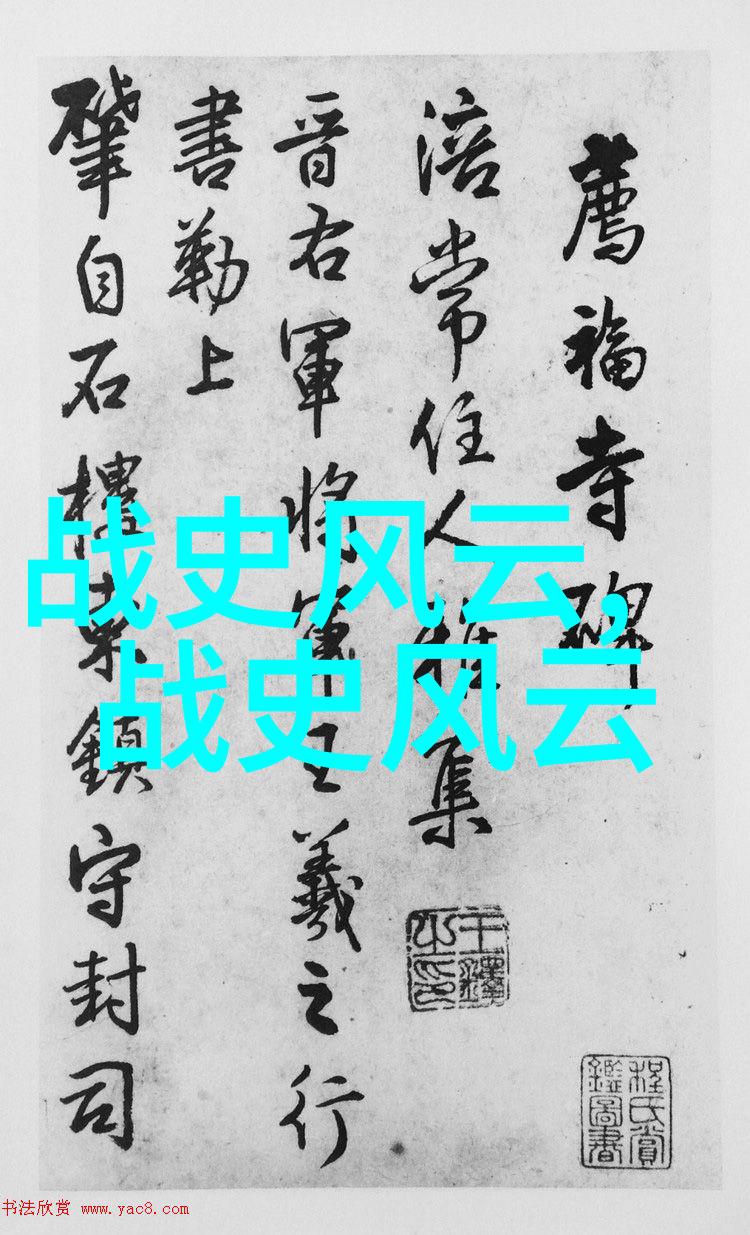 薦福寺碑
涪常住人集
晋右軍將軍王羲之行
書勒上
肇自石樓東鎮守封司
战史风云,
战史风云
王鐸
之印
程氏賞
鑑圖書
书法欣赏 www.yac8.com